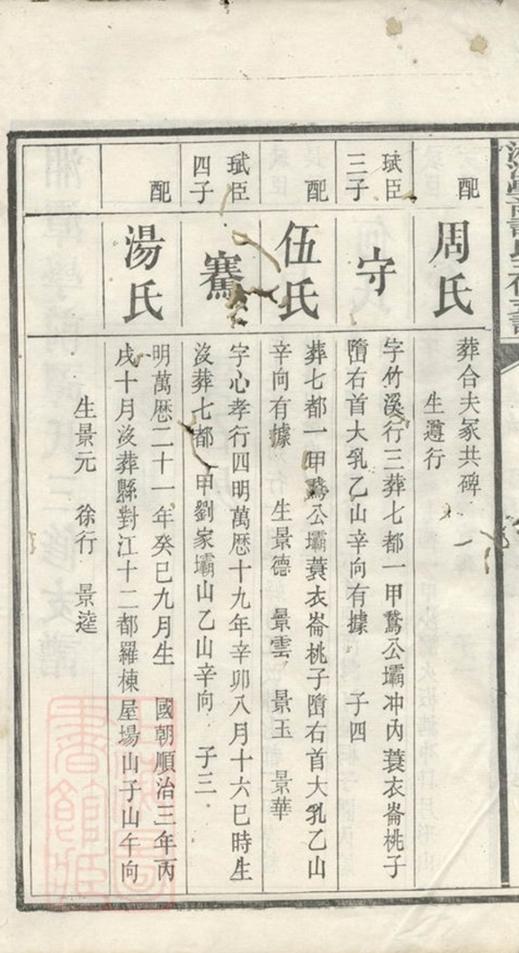 配
周氏
葬合夫冢共碑
生遵行
珷臣
三子
守
字竹溪行三葬七都一甲鶩公壩冲內蓑衣崙桃子
墮右首大乳乙山辛向有據 子四
配
伍氏
葬七都一甲鶩公壩蓑衣崙桃子墮右首大乳乙山
辛向有據 生景德 景雲 景玉 景華
珷臣
四子
騫
字心孝行四明萬歷十九年辛卯八月十六巳時生
沒葬七都一甲劉家壩山乙山辛向 子三
配
湯氏
明萬歷二十一年癸巳九月生 國朝順治三年丙
戌十月沒葬縣對江十二都羅棟屋場山子山午向
生景元 徐行 景逵